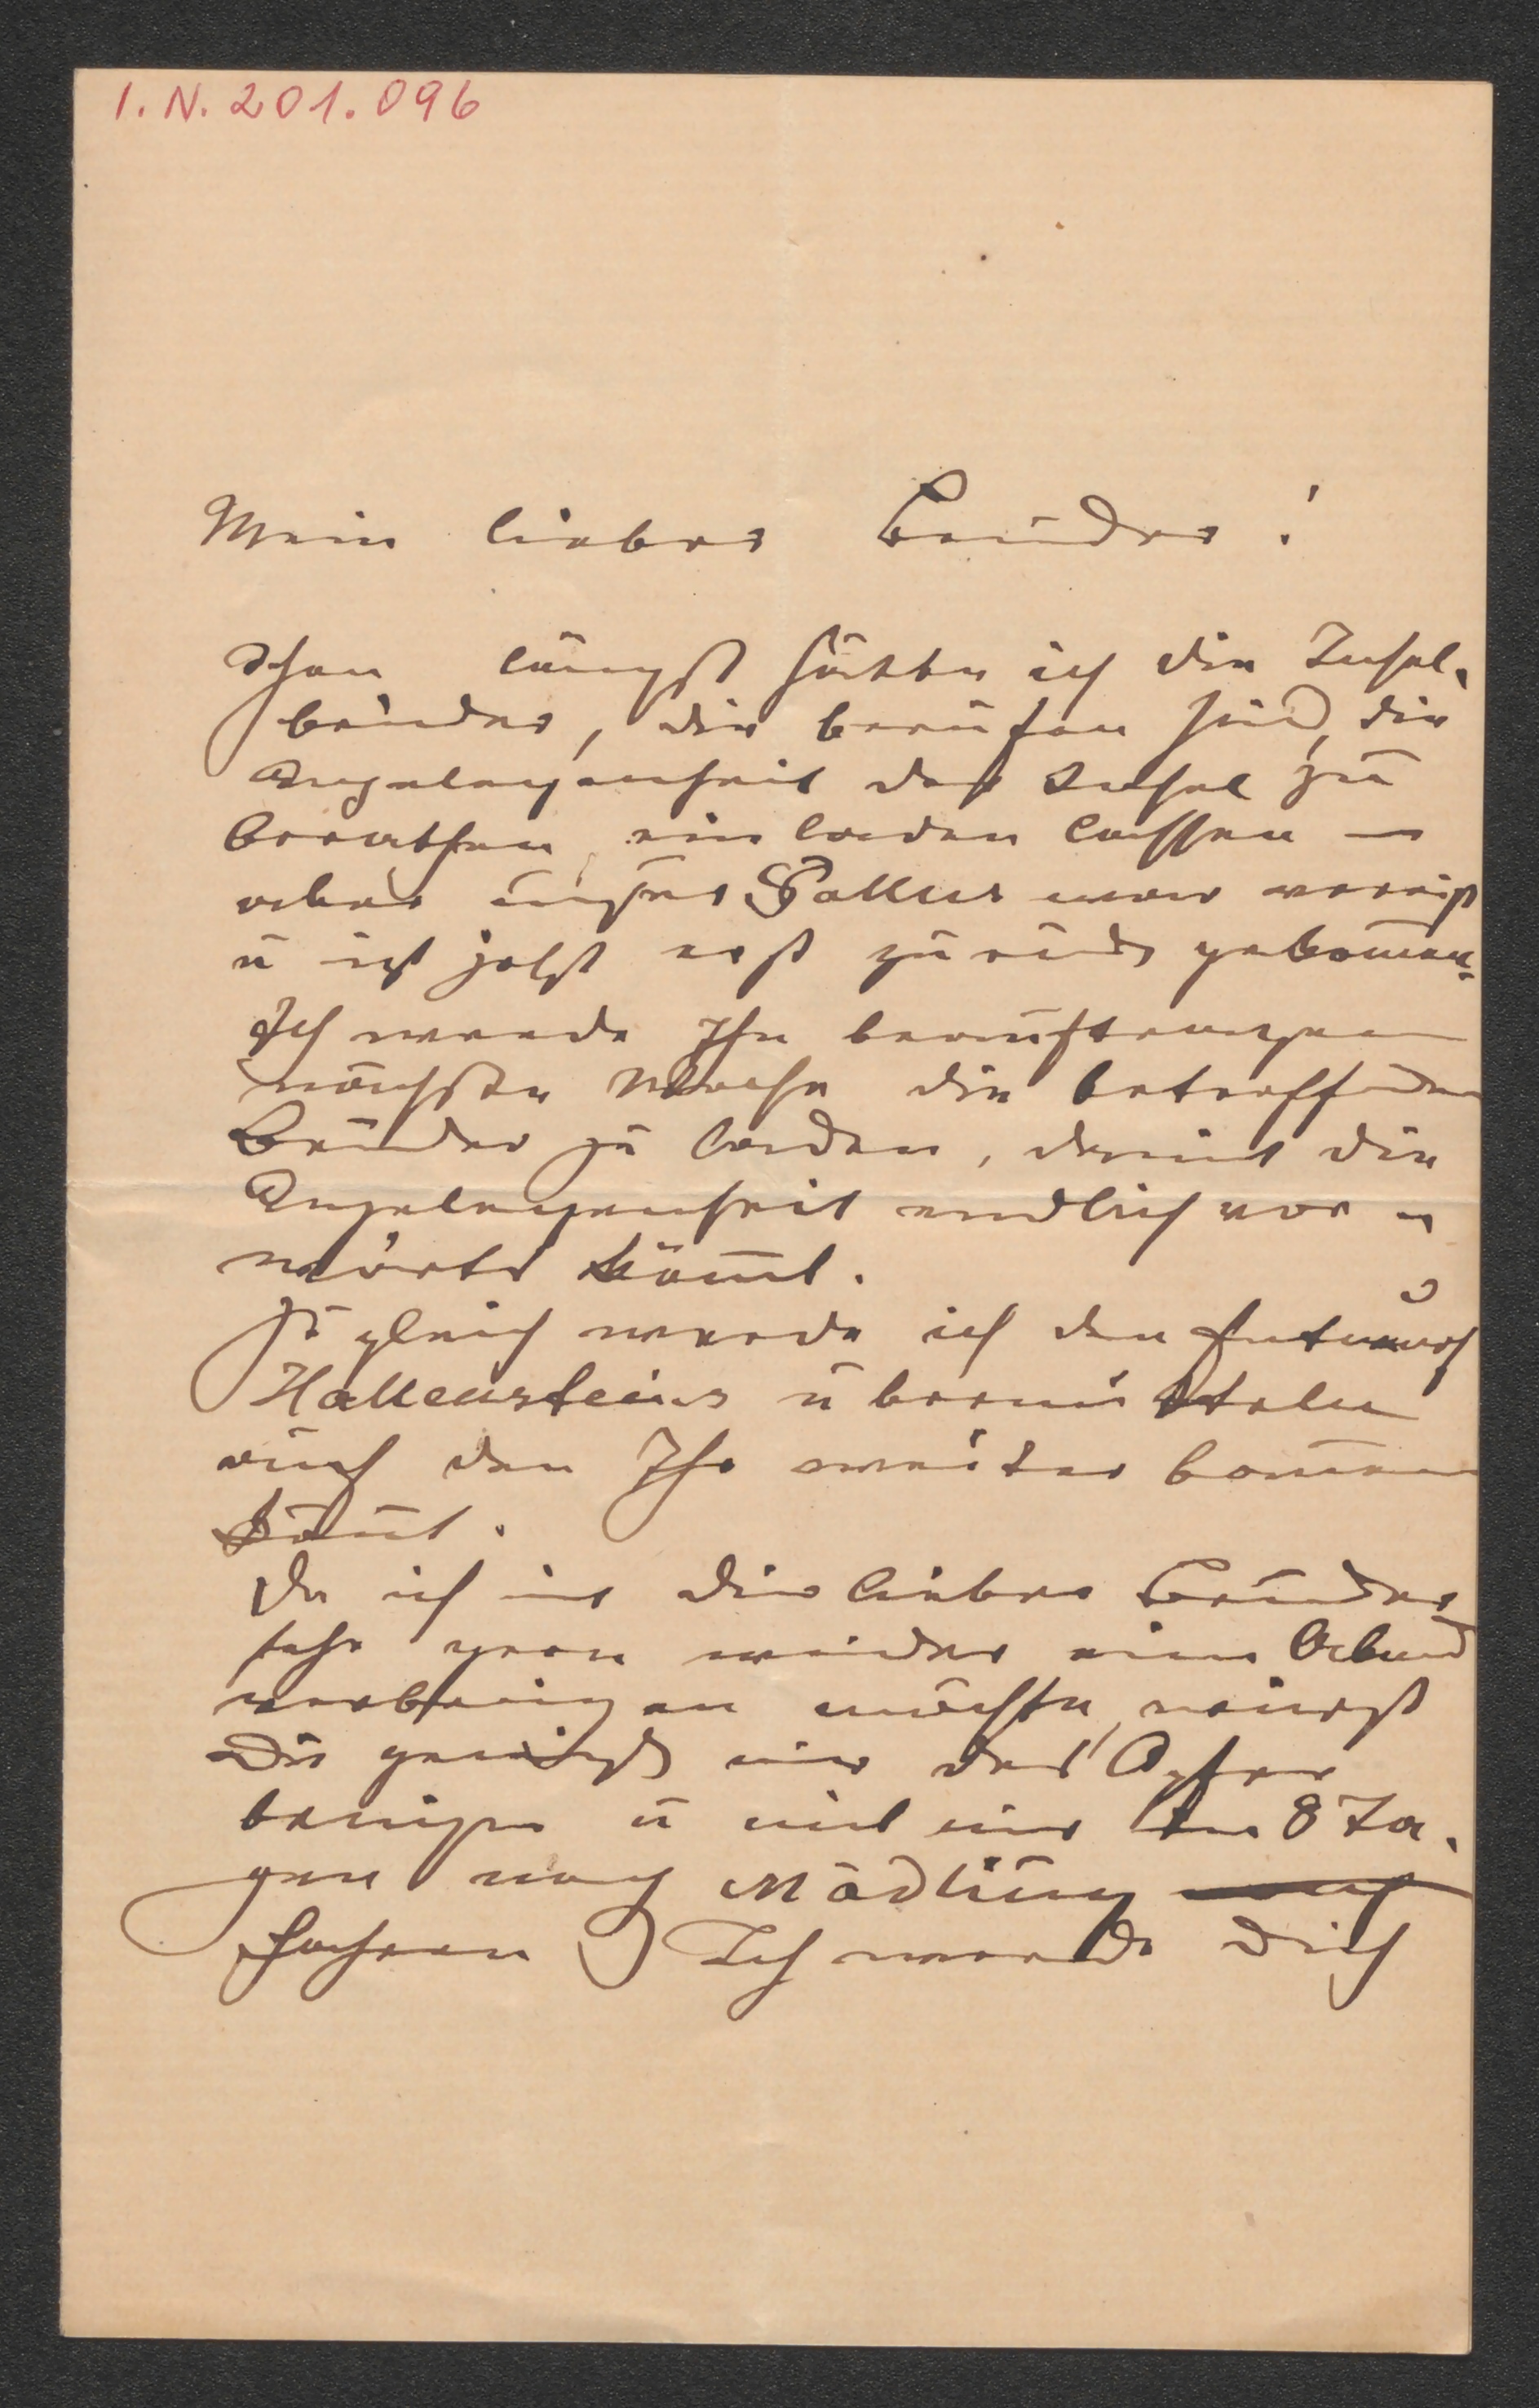 I. N. 201.096
Mein lieber Bruder!
Schon längst hätte ich die Insel-
brüder, die berufen sind, die
Angelegenheit der Insel zu
berathen, einladen lassen –
aber unser Pallus war verreist
u ist jetzt erst zurück gekom̄en.
Ich werde Ihn beauftragen
nächste Woche die betreffenden
Brüder zu laden, damit die
Angelegenheit endlich vor-
wärts kom̄t.
Zugleich werde ich den Entwurf
Hallensteins übermitteln
auf den Ihr weiter bauen
kön̄t.
Da ich mit Dir lieber Bruder
sehr gern wieder einen Abend
verbringen möchte, wirst
Du gewiß mir das Opfer
bringen u mit mir in 8 Ta-
gen nach Mödling
fahren Ich werde Dich